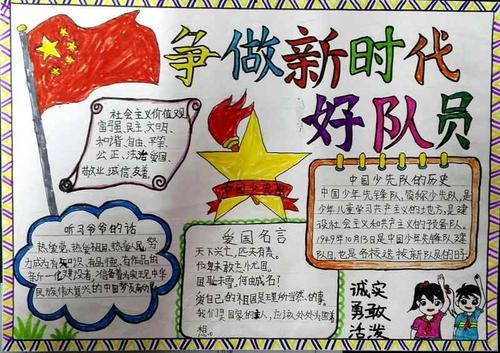 争做新时代
好队员
社会主义价值观
富强、民主、文明、
和谐、自由、平等、
公正、法治、爱国、
敬业、诚信、友善
中国少先队
中国少先队的历史
中国少年先锋队,简称少先队,是
少年儿童学习共产主义的地方,是建
设社会共产主义的预备队。
1949年10月13日是中国少年先锋队建
队日,也是各校选拔新队员的时
听习爷爷的话
热爱党、热爱祖国、热爱人民,努
力成为有知识、有品德、有作品的
新一代建设者,
民族伟大复兴的中国梦
爱国名言
天下兴亡,匹夫有责。
位卑未敢忘忧国。
国耻未雪,何由成名!
爱自己的祖国是理所当然的事。
我们是国家的主人,应该处处为国着
想。
诚实
勇敢
活泼